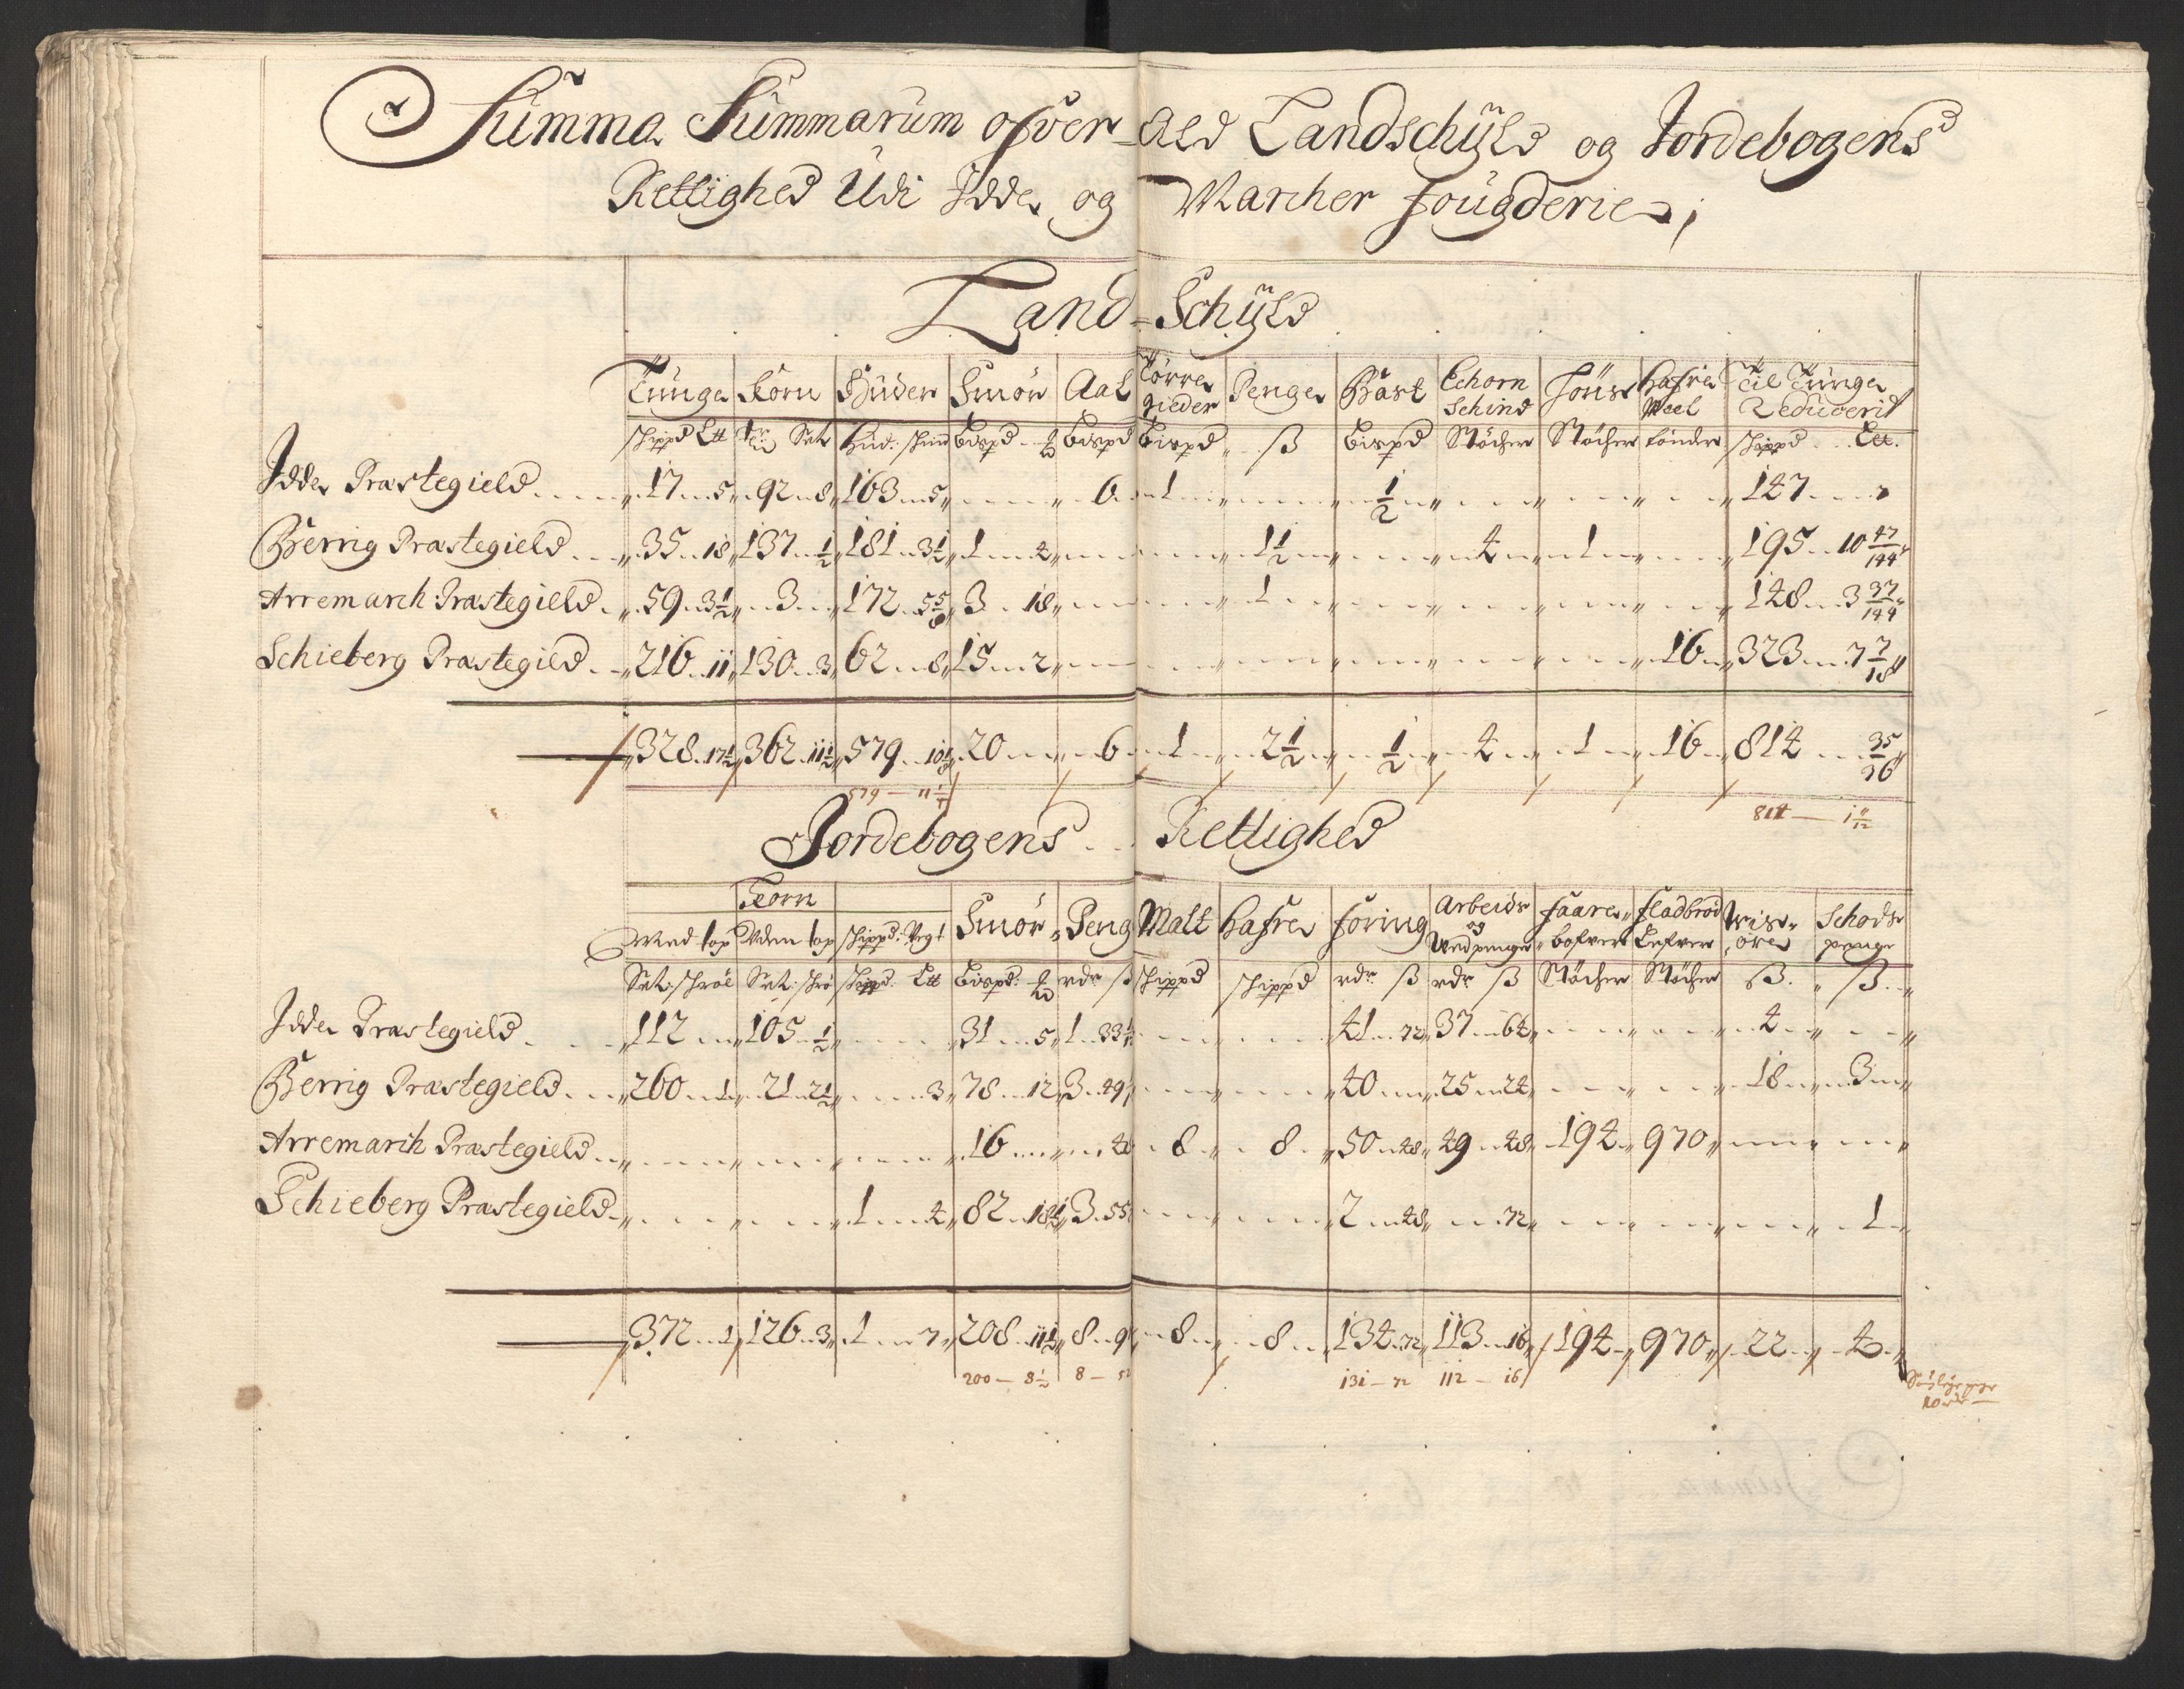 Summa Summarum ofver Ald Landschÿld og Jordebogens
Rettighed Udi Idde og Marcher fougderie;
Land-Schÿld
Tunge Korn Huder Smør Aal Tørre gieder Penge Bast Echorn Schind Hafre Meel Til Tunge Reducerit
schippd Ltt Set Hud: schind Bispd Bispd Bispd ß Bispd Støcher Støcher tønder schippd Ltt.
Idde Præstegield 17 5 92 8 163 5 6 1 1/2 147
Berrig Præstegield 35 18 137 1/2 181 3 1/2 1 1 1/2 4 1 195 10 47/144
Arremarch Præstegield 59 3 1/2 3 172 5 5/8 3 18 1 148 3 37/144
Schieberg Præstegield 216 11 130 3 62 8 15 2 16 323 7 7/18
328 17 1/2 362 11 1/2 579 20 6 1 2 1/2 1/2 4 1 16 814 35/36
579 — 11 814 — 1
Jordebogens Rettighed
Korn
Med top Uden top schippd: Vegt Smør Peng Malt Hafre foring Arbeids og Vedpenge faare bofver fladbrød Lefver Wisøre Schods penge
Set: Set: schippd. Ltt Bispd: rdr ß schippd schippd rdr ß rdr ß Støcher Støcher ß. ß.
Idde Præstegield 112 105 1/2 31 5 1 33 41 72 37 64 4
Berrig Præstegield 260 1 21 2 1/2 3 78 12 3 49 40 25 24 18 3
Arremarch Præstegield 16 8 8 50 48 49 48 194 970
Schieberg Præstegield 1 4 82 18 1/2 3 55 2 48 72 1
372 1 126 3 1 7 208 11 1/2 8 9 8 8 134 72 113 16 194 970 22 4
200 — 8 1/2 8 — 131 — 72 112 — 16